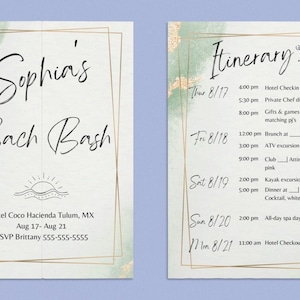 Sophia's
ach Bash
el Coco Hacienda Tulum, MX
Aug 17- Aug 21
SVP Brittany 555-555-5555
Itinerary
Thur 8/17
4:00 pm Hotel Checkin
5:30 pm Private Chef di
8:00 pm Gifts & games
matching pj's
Fri 8/18
12:00 pm Brunch at ____
3:00 pm ATV excursion
9:00 pm Club ___| Attir
pink
Sat 8/19
2:00 pm Kayak excursio
5:00 pm Dinner at ____
Cocktail, white
Sun 8/20
2:00 pm All-day spa day
Mon 8/21
11:00 am Hotel Checkou